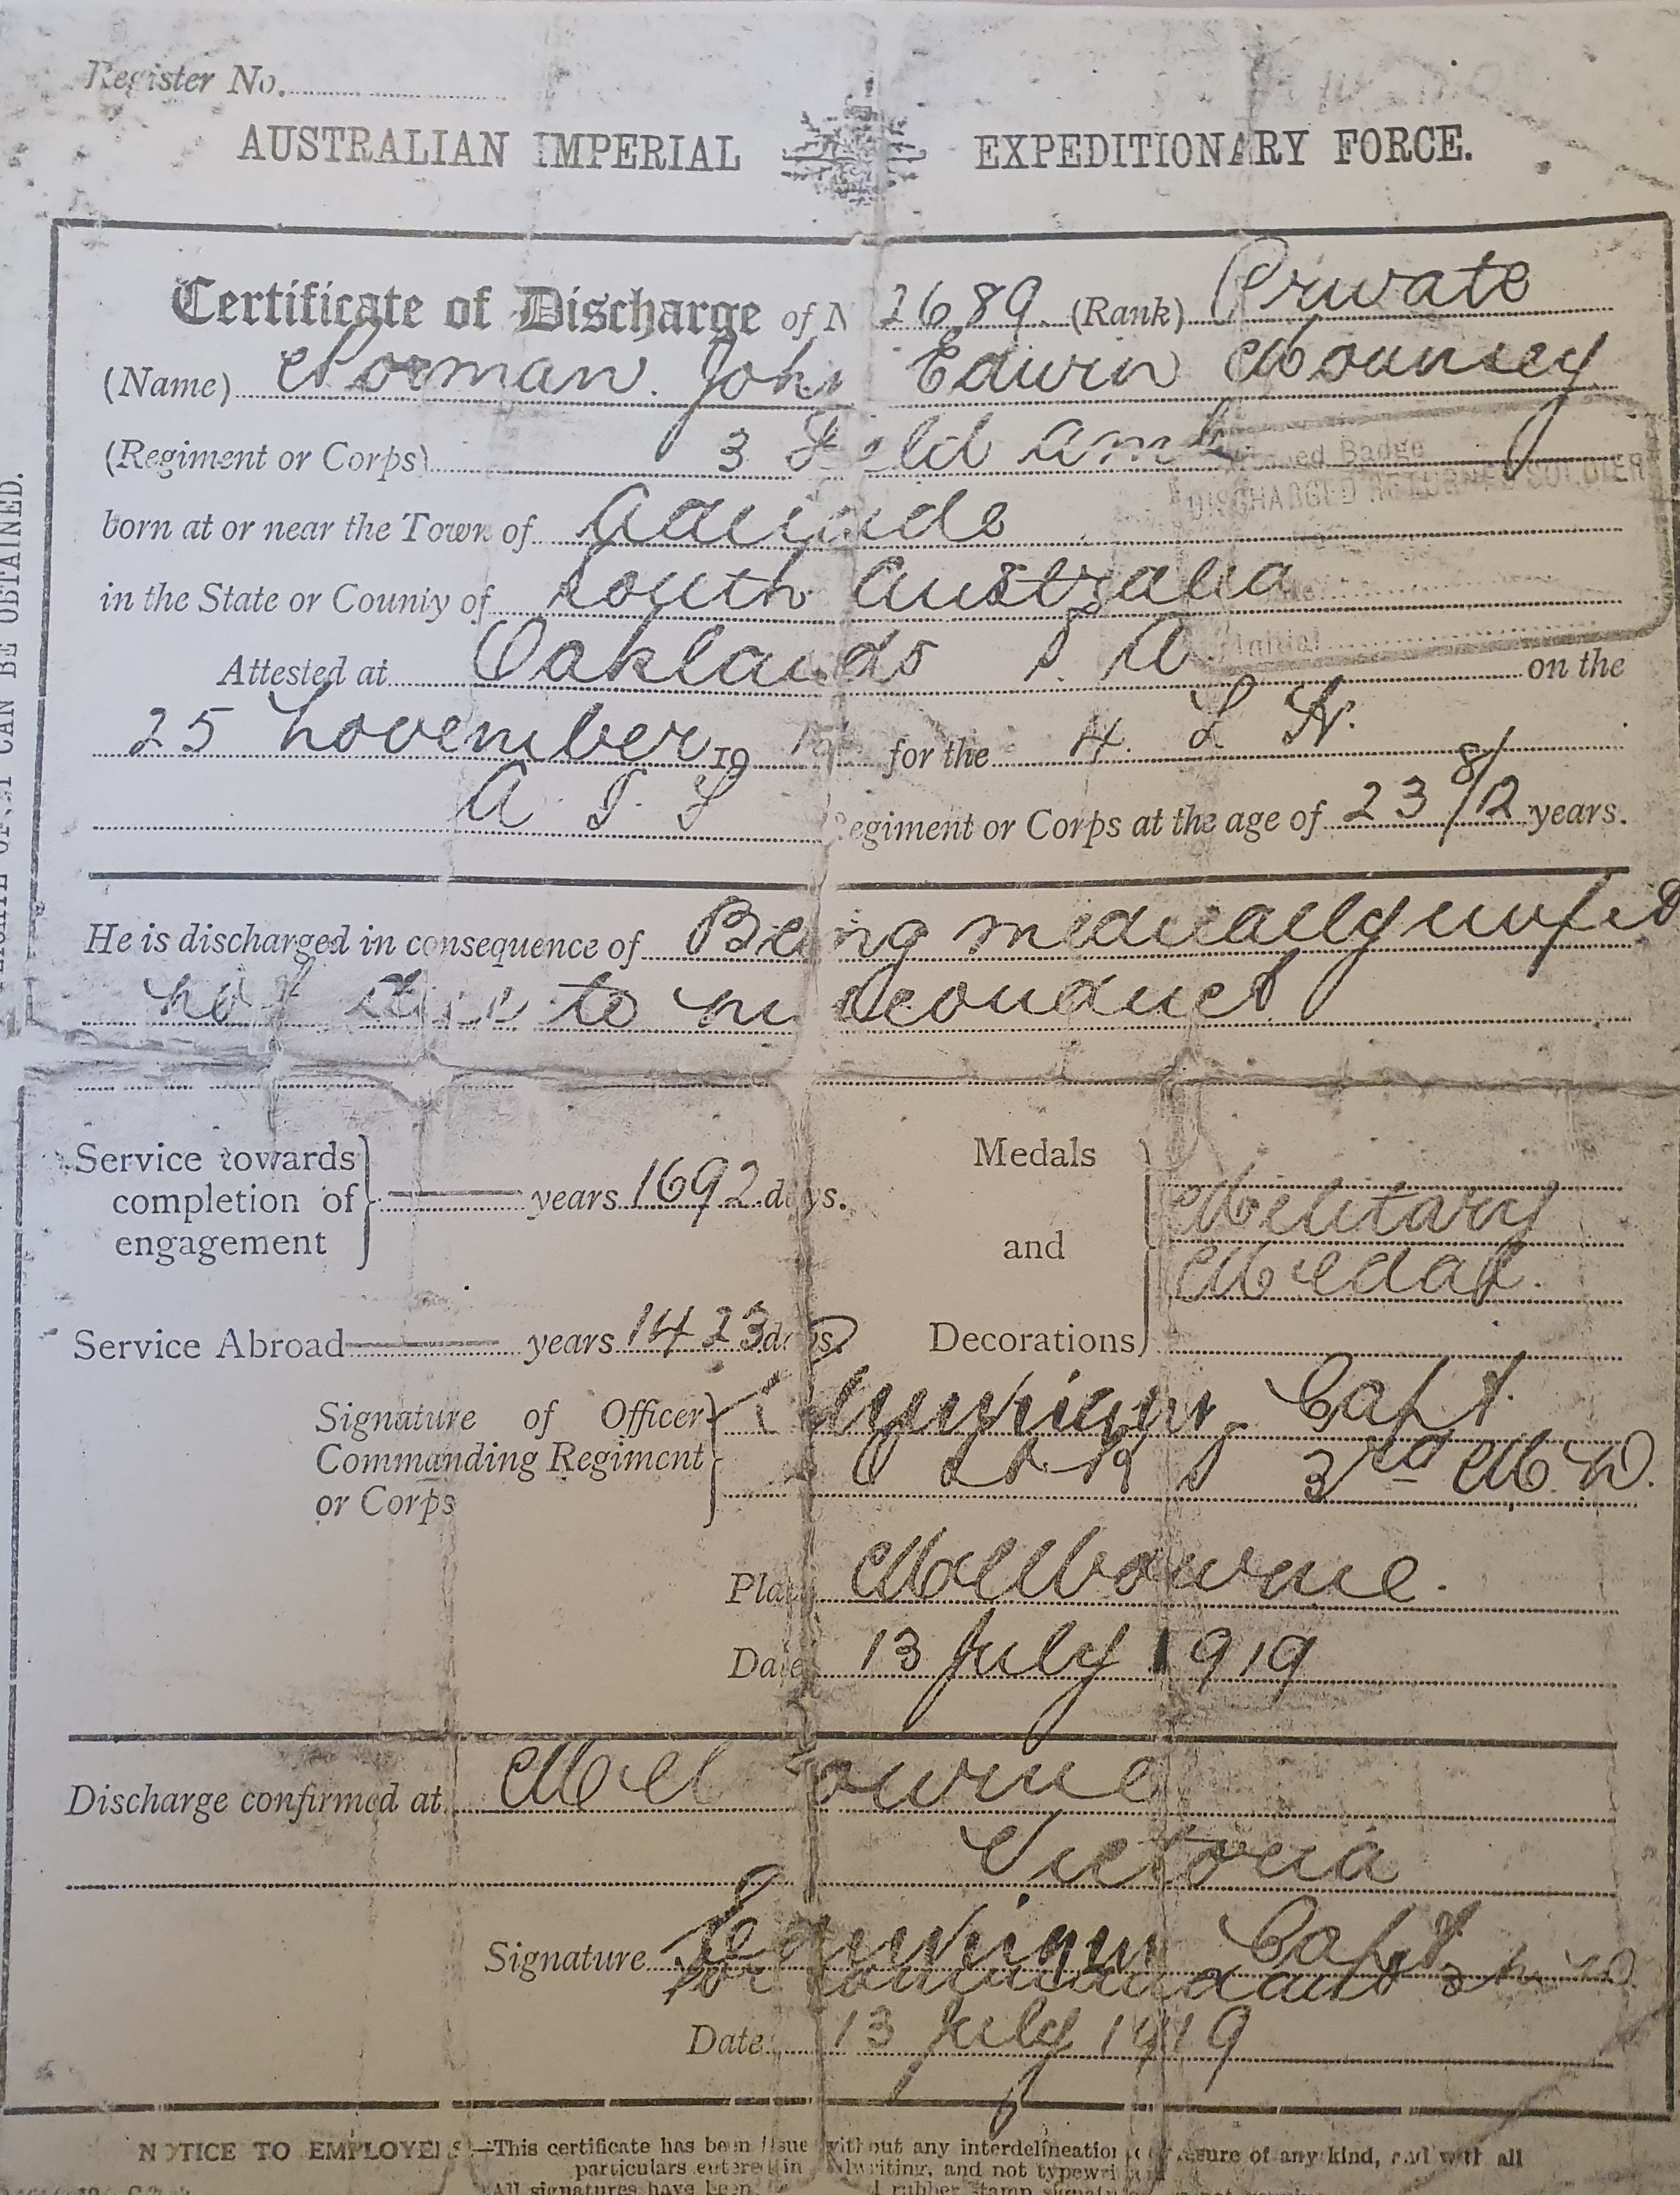 Register No.
AUSTRALIAN IMPERIAL EXPEDITIONARY FORCE.
Certificate of Discharge of N 2689 (Rank) Private
(Name) Norman John Edwin Mounsey
(Regiment or Corps) 3 Field Amb
Badge
DISCHARGED RETURNED SOLDIER
born at or near the Town of Adelaide
in the State or County of South Australia
Initial
Attested at Oaklands S. A on the
25 November 19 for the 4. L H.
A. I. F Regiment or Corps at the age of 23 8/12 years.
He is discharged in consequence of Being medically unfit
not due to misconduct
Service towards completion of engagement years 1692 days.
Medals and Decorations Military
Medal.
Service Abroad years 1423 days
Signature of Officer Capt.
Commanding Regiment 3rd M. D.
or Corps
Place Melbourne.
Date 13 July 1919
Discharge confirmed at Melbourne
Victoria
Signature Capt
for Commandant 3 M D.
Date 13 July 1919
NOTICE TO EMPLOYERS—This certificate has been issue without any interdelineation or erasure of any kind, and with all
particulars entered in writing, and not
All signatures have been rubber stamp
CAN BE OBTAINED.